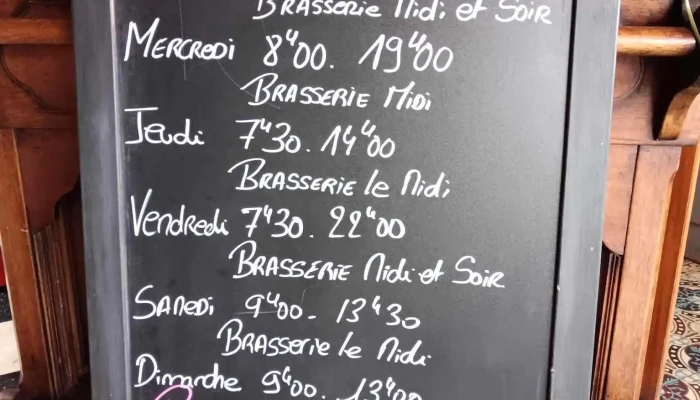 BRASSERIE Midi et SOIR
MERCREDI 8H00. 19H00
BRASSERIE MIDI
Jeudi 7H30. 14H00
BRASSERIE le Midi
Vendredi 7H30. 22H00
BRASSERIE Midi et SOIR
SAMEDI 9H00- 13H30
BRASSERIE le Midi
Dimanche 9H00. 13H00